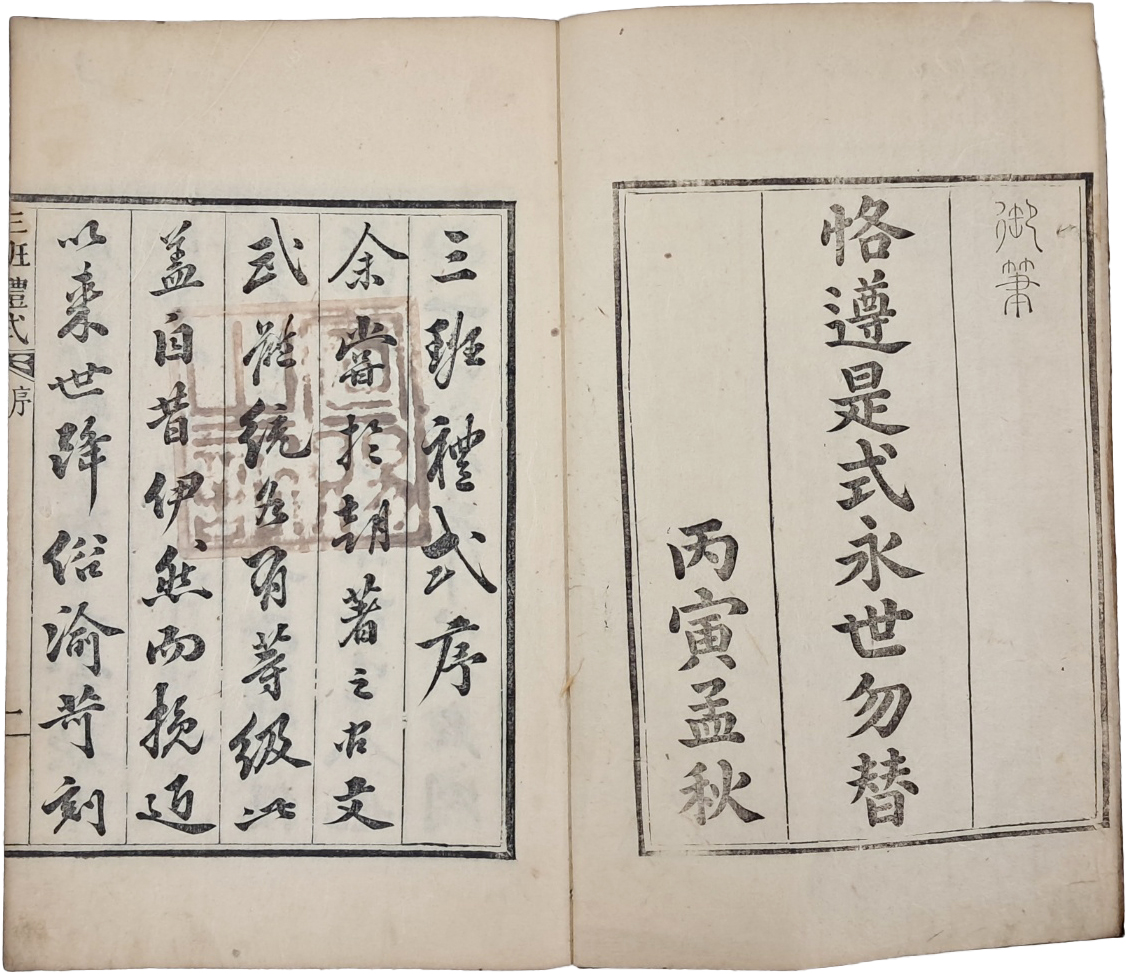 御筆
恪遵是式永世勿替
丙寅孟秋
三班禮式序
余嘗於朝著之文
武統各有等級此
盖自昔伊然而挽近
以來世降俗渝苛刻
三班禮式 序 一